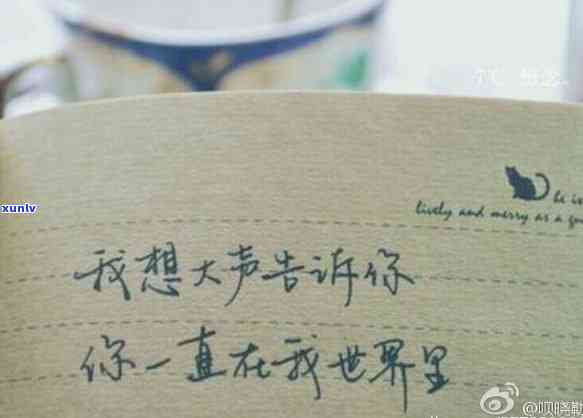 xunlv
be is
lively and merry as a
我想大声告诉你
你一直在我世界里